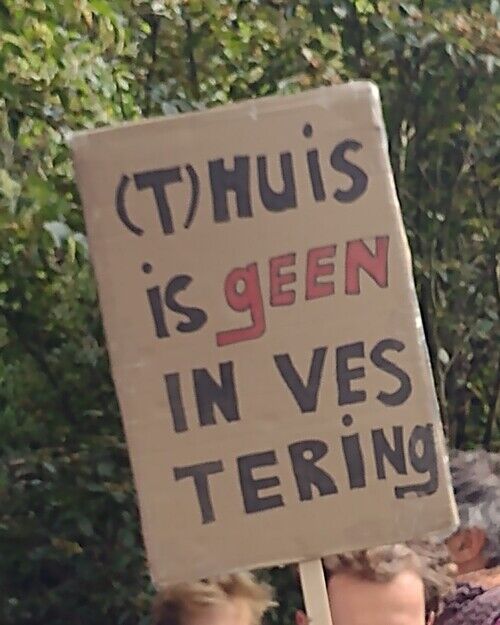 (T)HUiS
iS gEEN
IN VES
TERiNg